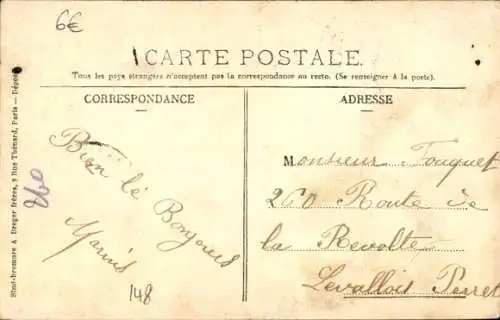 6€
CARTE POSTALE.
Tous les pays étrangers n'acceptent pas la correspondance au recto. (Se renseigner à la poste).
CORRESPONDANCE
ADRESSE
Bien lé
Bonjours
Marius
148
260
Monsieur Fouquet
260 Route de
la Revolte
Levallois Perret
Simi-bromure A. Breger Frères, 9 Rue Thénard, Paris — Déposé